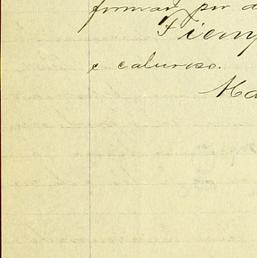 formad por d
Tiemp
e caluroso.
Ma